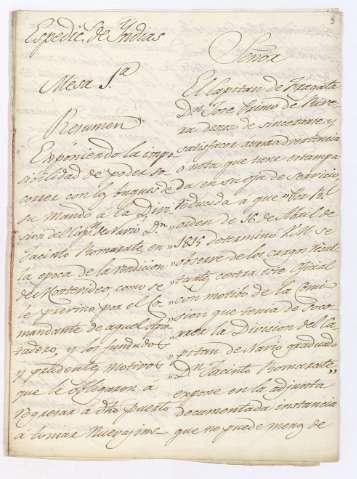 Espedic.ª de Yndias
Mesa 1.ª
Resumen
Exponiendo la imp
sibilidad de poder so
correr con los buques de
su mando à la Divi
sion del Cap.ⁿ de Navio D.ⁿ
Jacinto Romarate, en
la epoca de la rendicion
de Montevideo como se
le previno por el Co
mandante de aquel Apos
tadero, y los fundados
y prudentes motivos
que le obligaron á
regresar a dho puerto
à tomar nuevas ins
Señor
El Capitan de Fragata
D.ⁿ Jose Primo de Rive
ra desea de sincerarse y
satisfacer a una instancia
ò nota que tiene estampa
da en su oja de servicio,
reducida a que por Rl.
orden de 16 de Abril de
1815 determino V.M. se
observe de los cargos resul
tantes contra este Oficial
con motivo de la Comi
sion que tenia de soco
rrer la Division del Ca
pitan de Navio graduado
D.ⁿ Jacinto Romarate
expone en la adjunta
documentada instancia
que no puede menos de